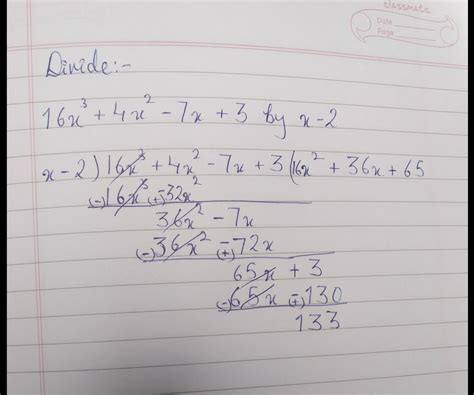 classmate
Date
Page
Divide:-
16x³ + 4x² - 7x + 3 by x-2
x-2) 16x³ + 4x² - 7x + 3 (16x² + 36x + 65
(-) 16x³ (+) -32x²
36x² - 7x
(-) 36x² (+) -72x
65x + 3
(-) 65x (+) -130
133